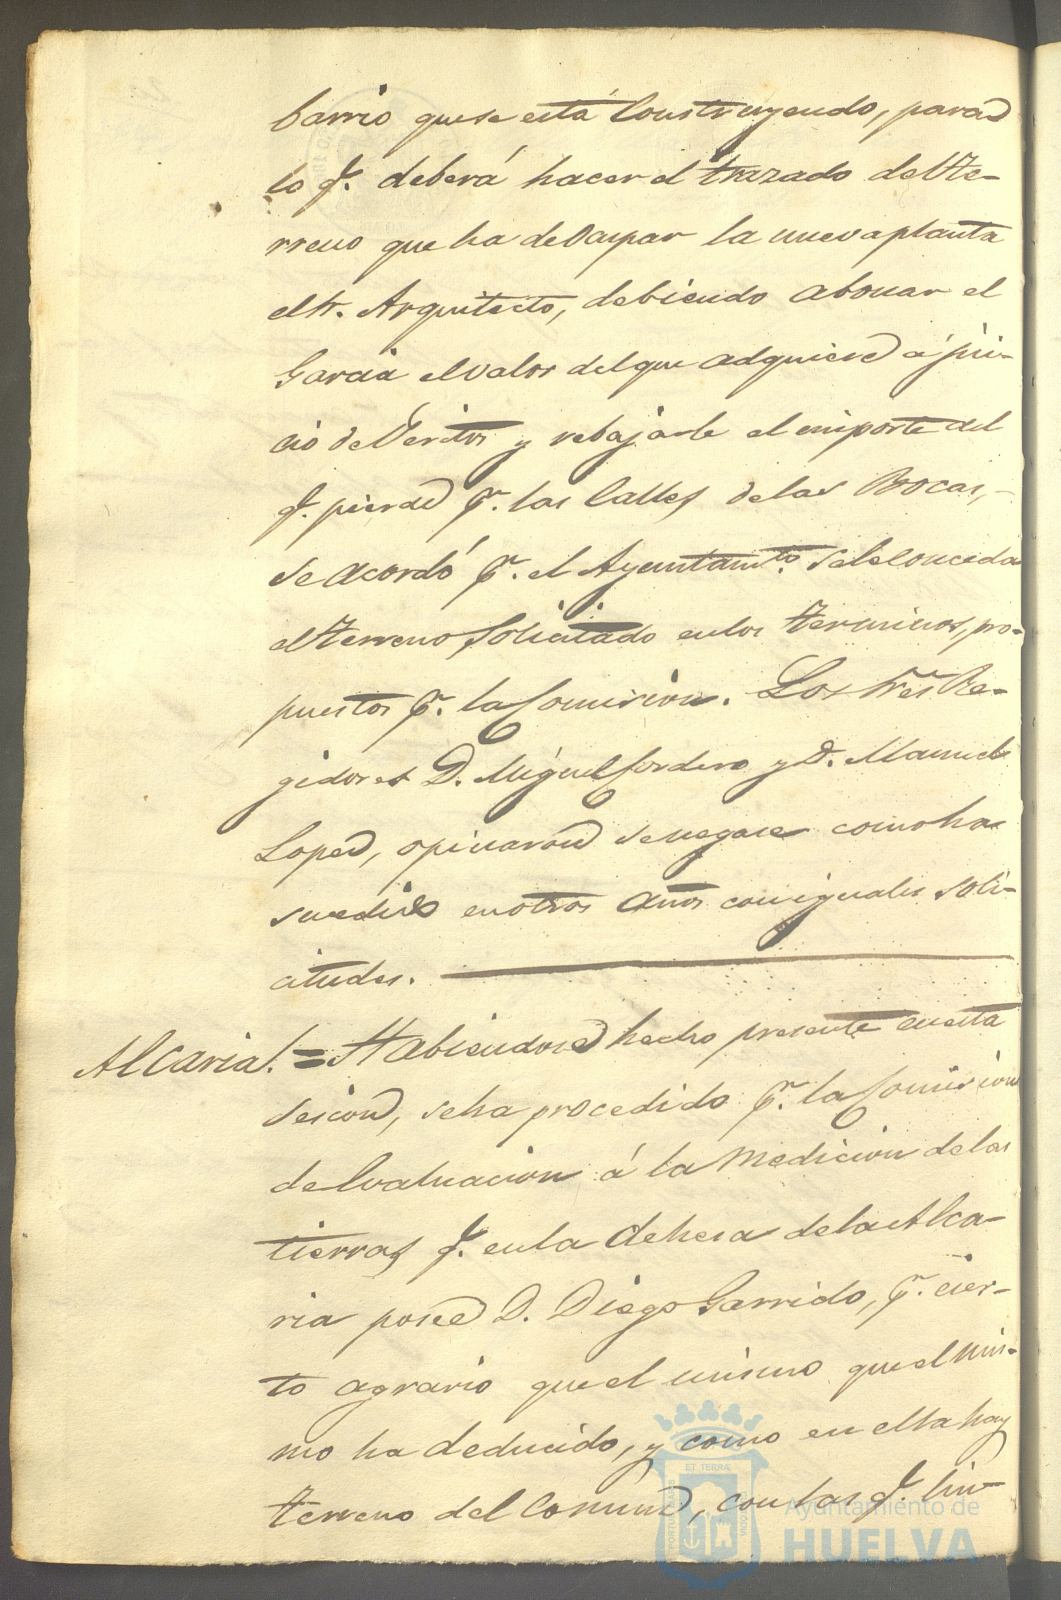 barrio que se está Construyendo, para
lo q.e deberá hacer el trazado del te-
rreno que ha de Ocupar la nueva planta
el Sr. Arquitecto, debiendo abonar el
Garcia el valor del que adquiere á jui-
cio de Peritos y rebajarle el importe del
q.e pierde p.r las Calles de las Bocas,
se acordó p.r el Ayuntamto. se le conceda
el terreno Solicitado en los terminos, pro-
puestos p.r la Comision. Los Sres. Re-
gidores D. Miguel Cordero y D. Manuel
Lopez, opinaron se negase como ha
sucedido en otros años con iguales soli-
citudes.
Alcaria. = Habiendose hecho presente en esta
Sesion, se ha procedido p.r la Comision
de Evaluacion á la Medicion de las
tierras q.e en la Dehesa de la Alca-
ria posee D. Diego Garrido, p.r cier-
to agravio que el mismo que el mis-
mo ha deducido, y como en ella hay
terreno del Comun, con las q.e lin-
ET TERRÆ
Ayuntamiento de
HUELVA